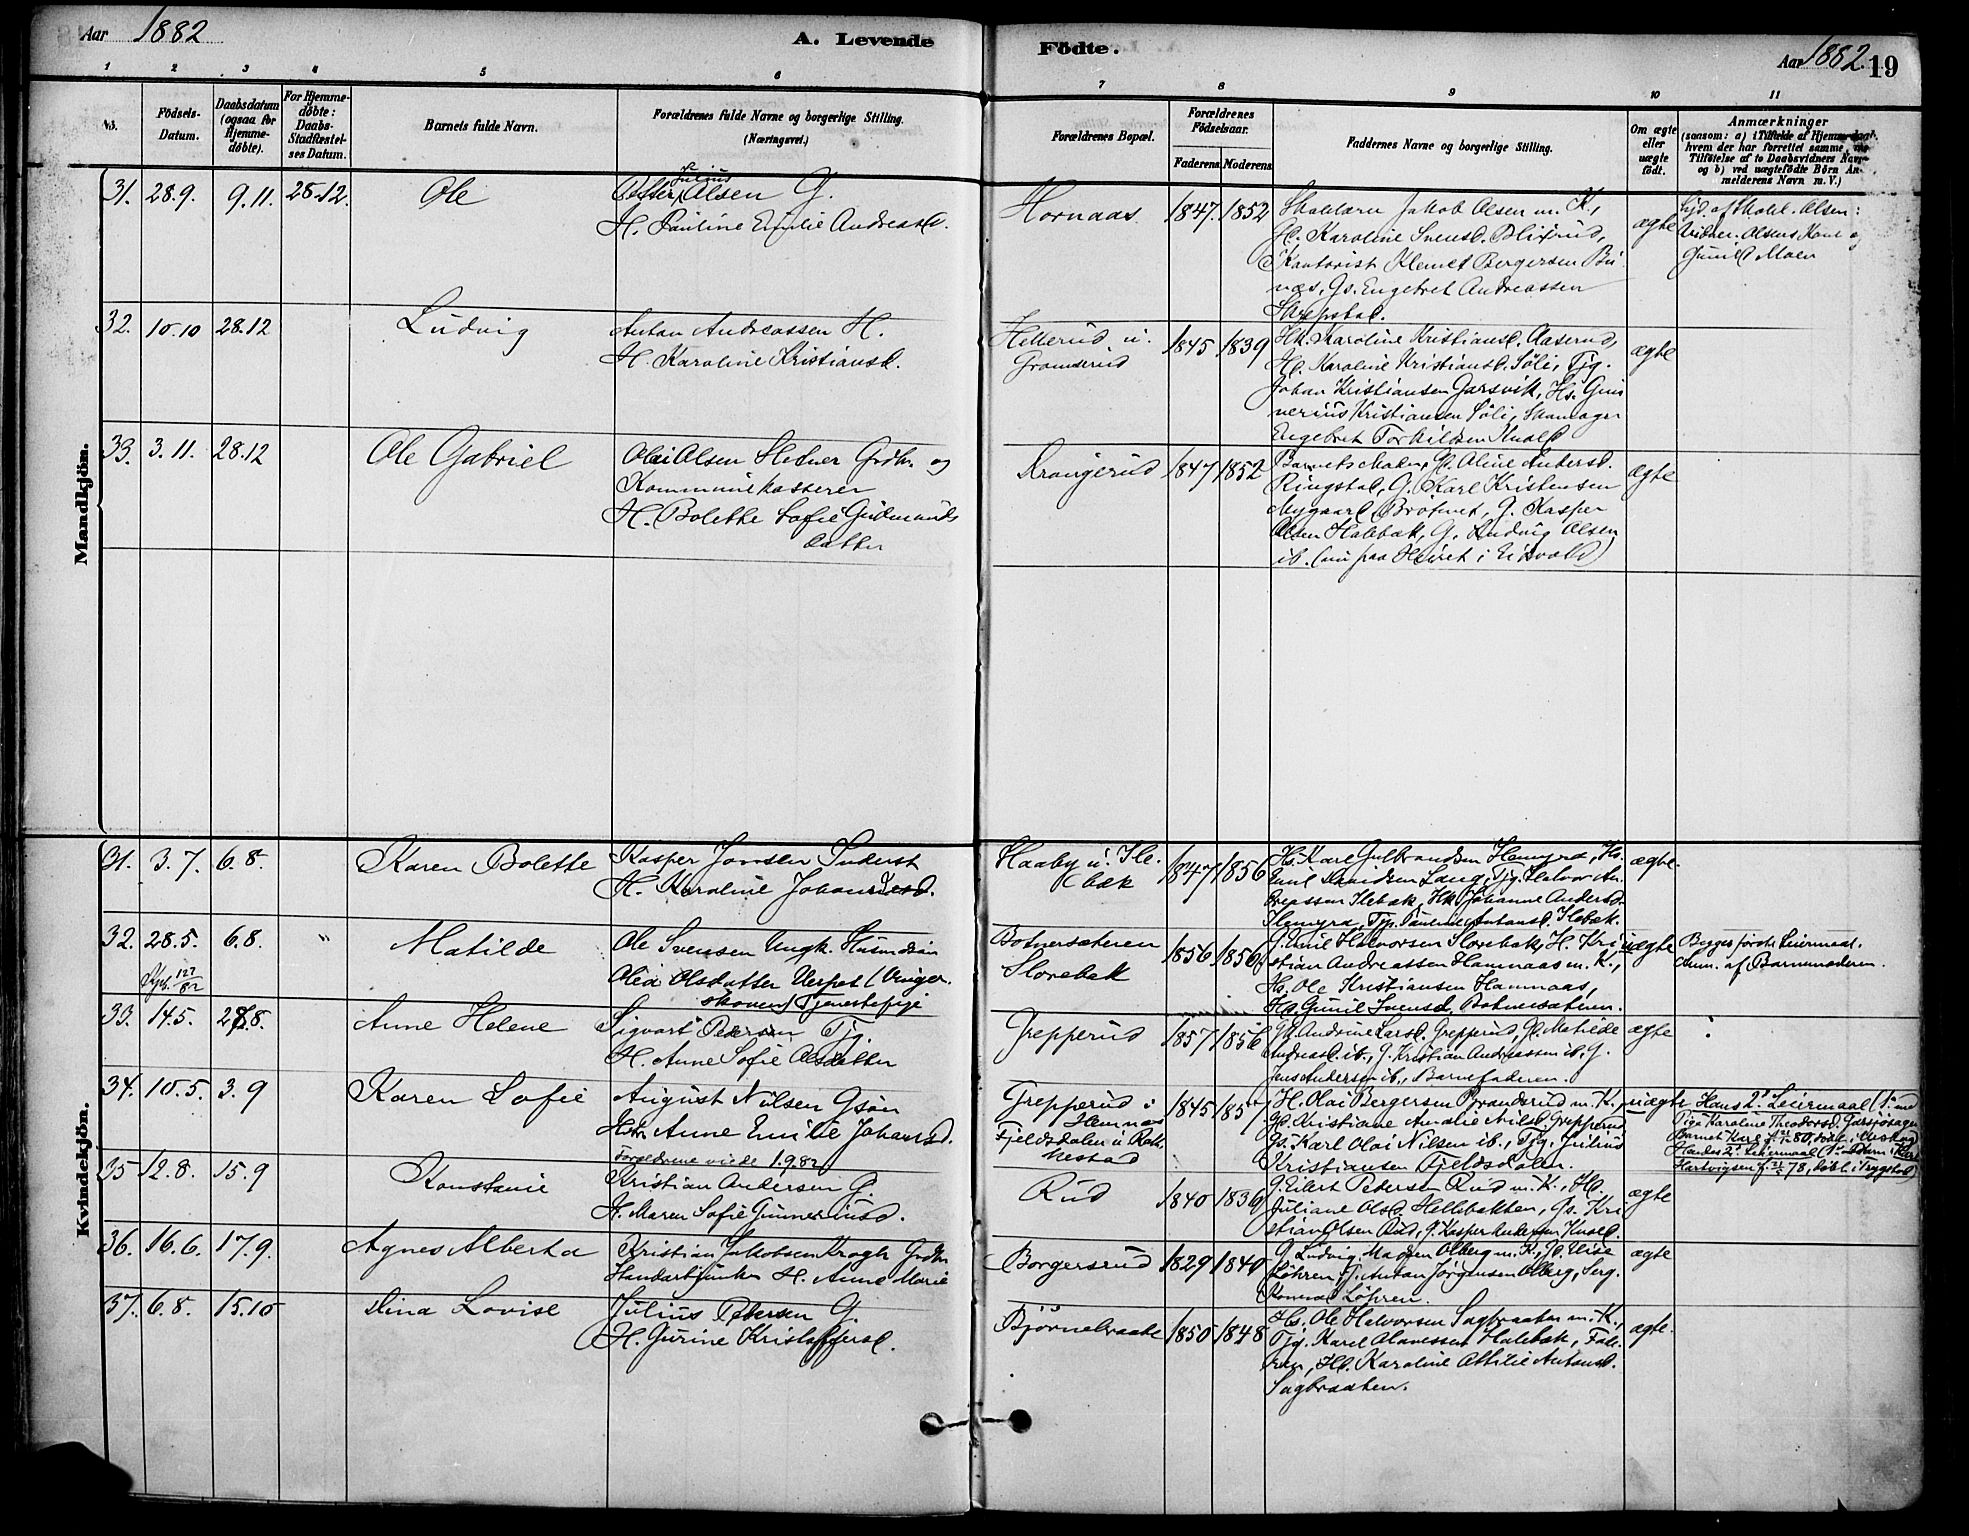 Aar 1882
A. Levende
Födte.
Aar 1882. 19
1 2 3 4 5 6 7 8 9 10 11
No.
Födsels-Datum.
Daabsdatum (ogsaa for Hjemme-döbte).
For Hjemme-döbte: Daabs-Stadfæstel-ses Datum.
Barnets fulde Navn.
Forældrenes fulde Navne og borgerlige Stilling.
(Næringsvei.)
Forældrenes Bopæl.
Forældrenes Födselsaar.
Faderens Moderens
Faddernes Navne og borgerlige Stilling.
Om ægte eller uægte födt.
Anmærkninger
(saasom: a) i Tilfælde af Hjemmedaab,
hvem der har forrettet samme,
Tilföielse af to Daabsvidners Navne
og b) ved uægtefödte Börn An-
melderens Navn m. V.)
Mandkjön.
31. 28.9. 9.11. 28.12. Ole
Julius
Petter Olsen G.
H. Pauline Emilie Andreasd.
Hornaas 1847. 1852
Skolelærer Jakob Olsen m. K.,
H. Karoline Svensd. Blixrud,
Kontorist Klemet Bergersen Bu
næs, Gs. Engebret Andreassen
Skrepstad.
ægte
Olsen:
Vidner. Olsens Kone og
Gunild Moen
32. 10.10 28.12 Ludvig
Anton Andreassen H.
H. Karoline Kristiansd.
Hellerud u.
1845 1839
Hk. Karoline Kristiansd. Aaserud,
H. Karoline Kristiansd. Söli, Tjg.
Johan Kristiansen Garsvik, Hs. Gun
nerius Kristiansen Söli, Skomager
Engebret Torkildsen
ægte
33. 3.11. 28.12 Ole Gabriel
Olai Olsen Grdbr. og
Kommunekasserer
H. Bolette Sofie Gudmunds
datter
Krangerud 1847 1852
Barnets Moder, Aline Andersd.
Ringstad, G. Karl Kristensen
Nygaard G. Kasper
Olsen Halebak, G. Ludvig Olsen
ib. (nu paa i Eidsvold)
ægte
Kvindekjön.
31. 3.7. 6.8. Karen Bolette
Kasper Jonsen Inderst
H. Karoline Johannesd.
Haaby u. Ile-
bæk
1847 1856
Hs. Karl Gulbrandsen Hemyra, Hs.
Emil Tjg. Halvor An-
dreassen Ilebæk, Hk. Johanne Andersd.
Hemyra, Tjp. Pauline Antonsd. Ilebæk
ægte.
32. 28.5. 6.8. " Matilde
127/82
Ole Svensen Ungk. Husmdsøn
Olea Olsdatter
skoven) Tjenestepige
Botnersæteren
Slorebæk
1856 1856
Emil Halvorsen Slorebæk, H. Kri
stian Andreassen Hamnaas m. K.,
Hs. Ole Kristiansen Hamnaas,
H. Gunil Svensd. Botnersæteren.
uægte
Begges förste Leiermaal.
Anm. af Barnemoderen.
33. 14.5. 8. Anne Helene
Sigvart Pedersen Tj.
H. Anne Sofie Olsdatter
Grepperud 1857 1856
Andrine Larsd. Grepperud, Matilde
Andreasd. ib., G. Kristian Andreassen ib., G.
Jens Andersen ib., Barnefaderen.
ægte
34. 10.5. 3.9 Karen Sofie
August Nilsen Gsön
Anne Emilie Johansd.
Forældrene viede 1.9.82
Grepperud i
Hemnæs
Fjeldsdalen u. Rak
kestad
1845 1857
H. Olai Bergersen Branderud m. K.,
Kristiane Amalie Nilsd. Grepperud
Gs. Karl Olai Nilsen ib., Tjg. Julius
Kristiansen Fjeldsdalen.
uægte
Hans 2det Leiermaal (1. med
Pige Karoline Theodorsd.
Barnet Karl 80, döbt i
Hendes 2det Leiermaal
Hartvigsen f. 78, döbt i Trygstad)
35 12.8. 15.9 Konstanse
Kristian Andersen G.
H. Maren Sofie Gunneriusd.
Rud 1840 1839
G. Eilert Pedersen Rud m. K., H.
Juliane Olsd. Hellebakken, Gs. Kri
stian Olsen Rud, G. Kasper Andersen
ægte
36. 16.6. 17.9. Agnes Alberta
Kristian Jakobsen Krogh Grdbr
Standartjunker H. Anne Marie
Borgersrud 1829 1840
G. Ludvig Madsen Olberg m. K.,
Löhren, Anton Jörgensen Olberg, Serg.
Konrad Löhren.
ægte
37. 6.8. 15.10 Lina Lovise
Julius Petersen G.
H. Gurine Kristoffersd.
Bjørnebraate 1850 1848
Hs. Ole Halvorsen Sagbraaten m. K.,
Tjg. Karl Halebæk, Fade-
ren, H. Karoline Attilie Antonsd.
Sagbraaten.
ægte.